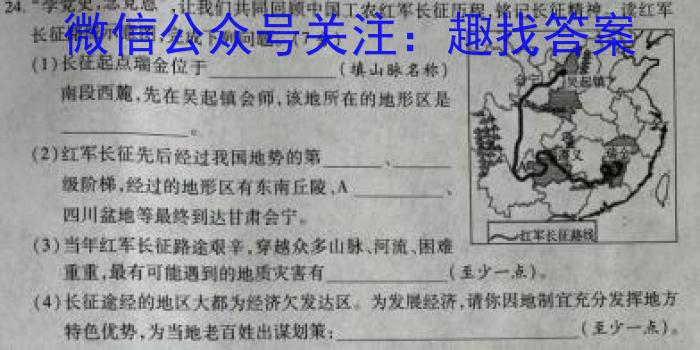 24. "学党史,念党恩",让我们共同回顾中国工农红军长征历程,铭记长征精神。读红军
长征
微信公众号关注：趣找答案
(1)长征起点瑞金位于__________(填山脉名称)
南段西麓,先在吴起镇会师,该地所在的地形区是
__________。
(2)红军长征先后经过我国地势的第_____、_____
级阶梯,经过的地形区有东南丘陵、A________、
四川盆地等最终到达甘肃会宁。
(3)当年红军长征路途艰辛,穿越众多山脉、河流、困难
重重,最有可能遇到的地质灾害有__________(至少一点)。
(4)长征途经的地区大都为经济欠发达区。为发展经济,请你因地制宜充分发挥地方
特色优势,为当地老百姓出谋划策:____________________(至少一点)。
会宁
吴起镇
遵义
瑞金
红军长征路线